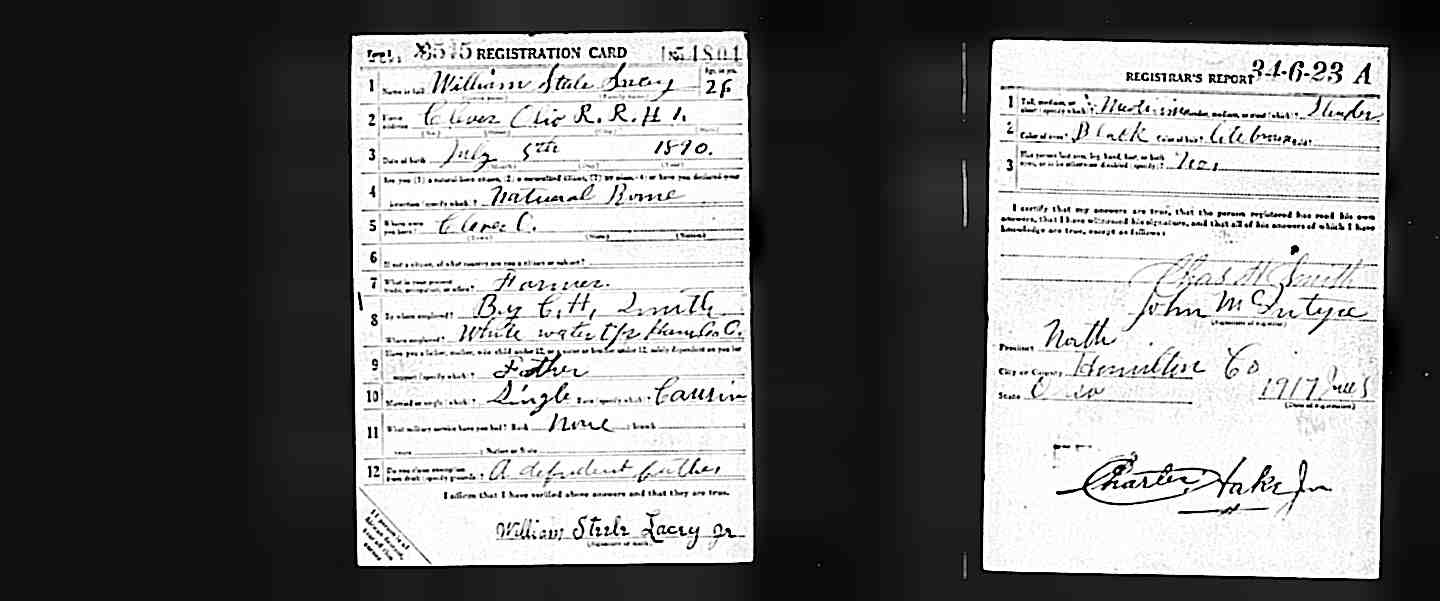 Form 1 3515 REGISTRATION CARD No. 1801
1 Name in full William Stele Lacey Age, in yrs. 26
2 Home address Cleves Ohio R. R. # 1.
3 Date of birth July 5th 1890.
(Month) (Day) (Year)
4 Are you (1) a natural-born citizen, (2) a naturalized citizen, (3) an alien, (4) or have you declared your
intention (specify which)? Natural Borne
5 Where were you born? Cleves O.
(Town) (State) (Nation)
6 If not a citizen, of what country are you a citizen or subject?
7 What is your present trade, occupation, or office? Farmer.
8 By whom employed? By C. H. Smith
Where employed? White water tps Hamilton O.
9 Have you a father, mother, wife, child under 12, or a sister or brother under 12, solely dependent on you for
support (specify which)? Father
10 Married or single (which)? Single Race (specify which)?
11 What military service have you had? Rank None ; branch
years ; Nation or State
12 Do you claim exemption from draft (specify grounds)? A dependent father
I affirm that I have verified above answers and that they are true.
William Steele Lacey Jr
REGISTRAR'S REPORT 34-6-23 A
1 Tall, medium, or short (specify which)? Medium Slender, medium, or stout (which)? Slender
2 Color of eyes? Black Color of hair?
3 Has person lost arm, leg, hand, foot, or both eyes, or is he otherwise disabled (specify)? No,
I certify that my answers are true, that the person registered has read his own
answers, that I have witnessed his signature, and that all of his answers of which I have
knowledge are true, except as follows:
Chas H Smith
John McIntyre
(Signature of registrar)
Precinct North
City or County Hamilton Co
State Ohio 1917 June 5
(Date of registration)
Charles Hake Jr